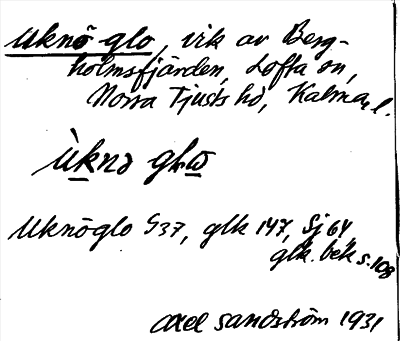 Uknö glo, vik av Berg-
holmsfjärden, Lofta sn,
Norra Tjusts hd, Kalmar l.
Ùknə glɷ
Uknöglo G37, glk 147, Sj 64
glk. besk s. 108
Axel Sandström 1931